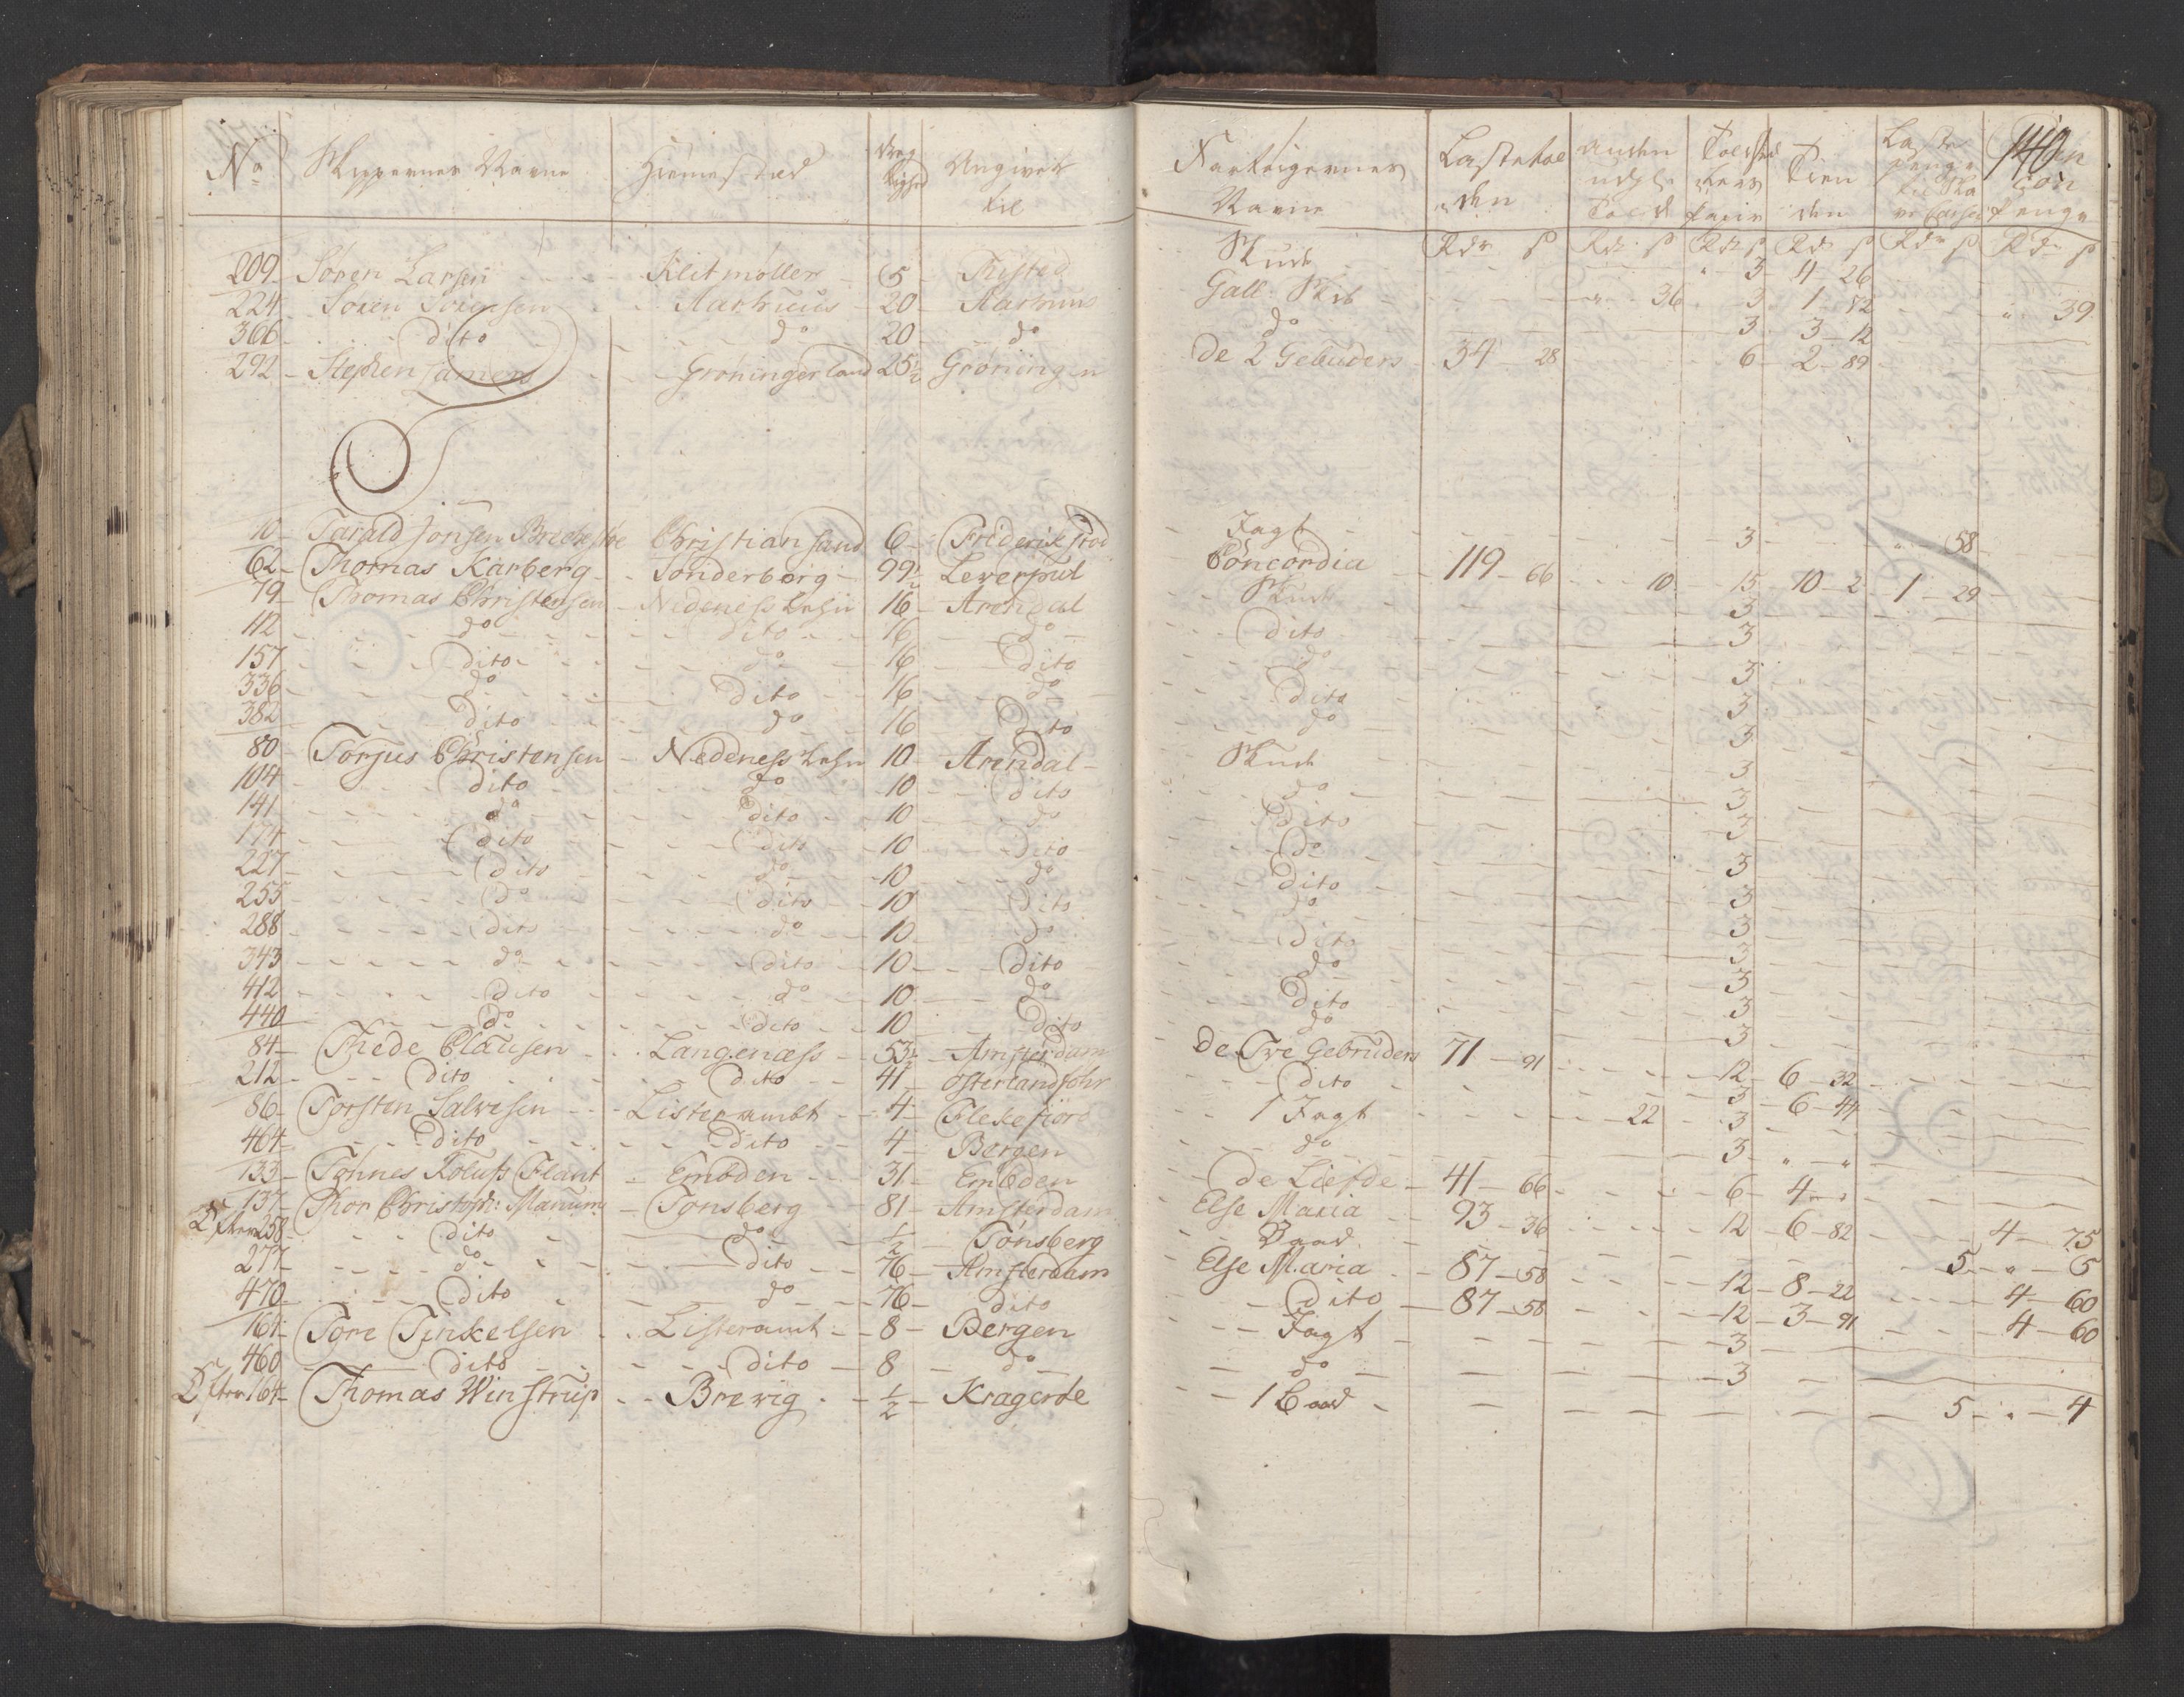 No Skippernes Navne Hiemsted Drægtighed Angivet til
209 Soren Larsen Klitmoller 5 Thisted
224 Soren Sorensen Aarhuus 20 Aarhuus
366 dito do 20 do
292 Stephen Gröningerland 25½ Gröningen
10 Tarald Jonsen Christiansand 6 Friderikstad
62 Thomas Karberg Sonderborg 99½ Leverpul
79 Thomas Christensen Nedeness Lehn 16 Arendal
112 do dito 16 do
157 dito do 16 dito
336 do dito 16 do
382 dito do 16 Dito
80 Torjus Christensen Nedeness Lehn 10 Arendal
104 dito do 10 dito
141 do dito 10 do
174 dito dito 10 dito
227 dito do 10 do
255 do dito 10 dito
288 dito do 10 do
343 do dito 10 dito
412 dito do 10 do
440 do dito 10 dito
84 Thede Clausen Langenæss 53½ Amsterdam
212 dito dito 41 Osterlandföhr
86 Torsten Salvesen Listerambt 4 Flekefiord
464 dito dito 4 Bergen
133 Tönnes Flant Embden 31 Embden
137 Thor Christoph: Manum Tonsberg 81 Amsterdam
258 dito do ½ Tönsberg
277 do dito 76 Amsterdam
470 dito do 76 dito
161 Tore Tinkelsen Listeramt 8 Bergen
460 dito dito 8 do
164 Thomas Winstrup Brevig ½ Krageröe
140
Fartøigernes Navne
Rdr s Rdr s Rdr s Rdr s Rdr s Rdr s
Skude 3 4 26
Gall. Skib 36 3 1 82 39
do 3 3 12
De 2 Gebuders 34 28 6 2 89
Jagt 3 58
Concordia 119 66 10 15 10 2 1 29
Skude 3
dito 3
do 3
Dito 3
do 3
Skude 3
do 3
Dito 3
do 3
Dito 3
do 3
Dito 3
do 3
Dito 3
do 3
De Tve Gebruders 71 91 12 6 32
dito 3 6 44
1 Jagt 22 3
do 3
de Liefde 41 66 6 4
Else Maria 93 36 12 6 82 4 75
Baad 5 5
Else Maria 87 58 12 8 22 4 60
Dito 87 58 12 3 91 4 60
Jagt 3
do 3
1 Baad 5 4